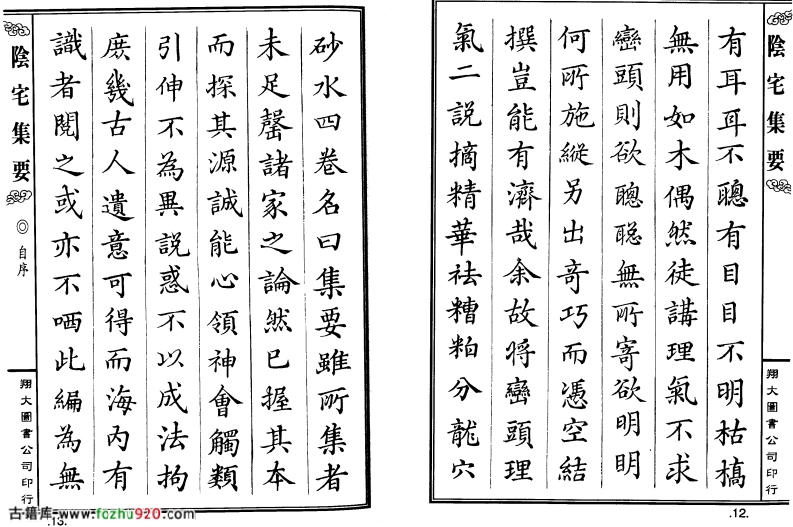 陰宅集要
有耳耳不聰有目目不明枯槁
無用如木偶然徒講理氣不求
巒頭則欲聰聰無所寄欲明明
何所施縱另出奇巧而憑空結
撰豈能有濟哉余故將巒頭理
氣二説摘精華祛糟粕分龍穴
翔大圖書公司印行
.12.
砂水四卷名曰集要雖所集者
未足罄諸家之論然已握其本
而探其源誠能心領神會觸類
引伸不為異説惑不以成法拘
庶幾古人遺意可得而海內有
識者閱之或亦不哂此編為無
陰宅集要
◎自序
翔大圖書公司印行
.13.
古籍库-www.fozhu920.com